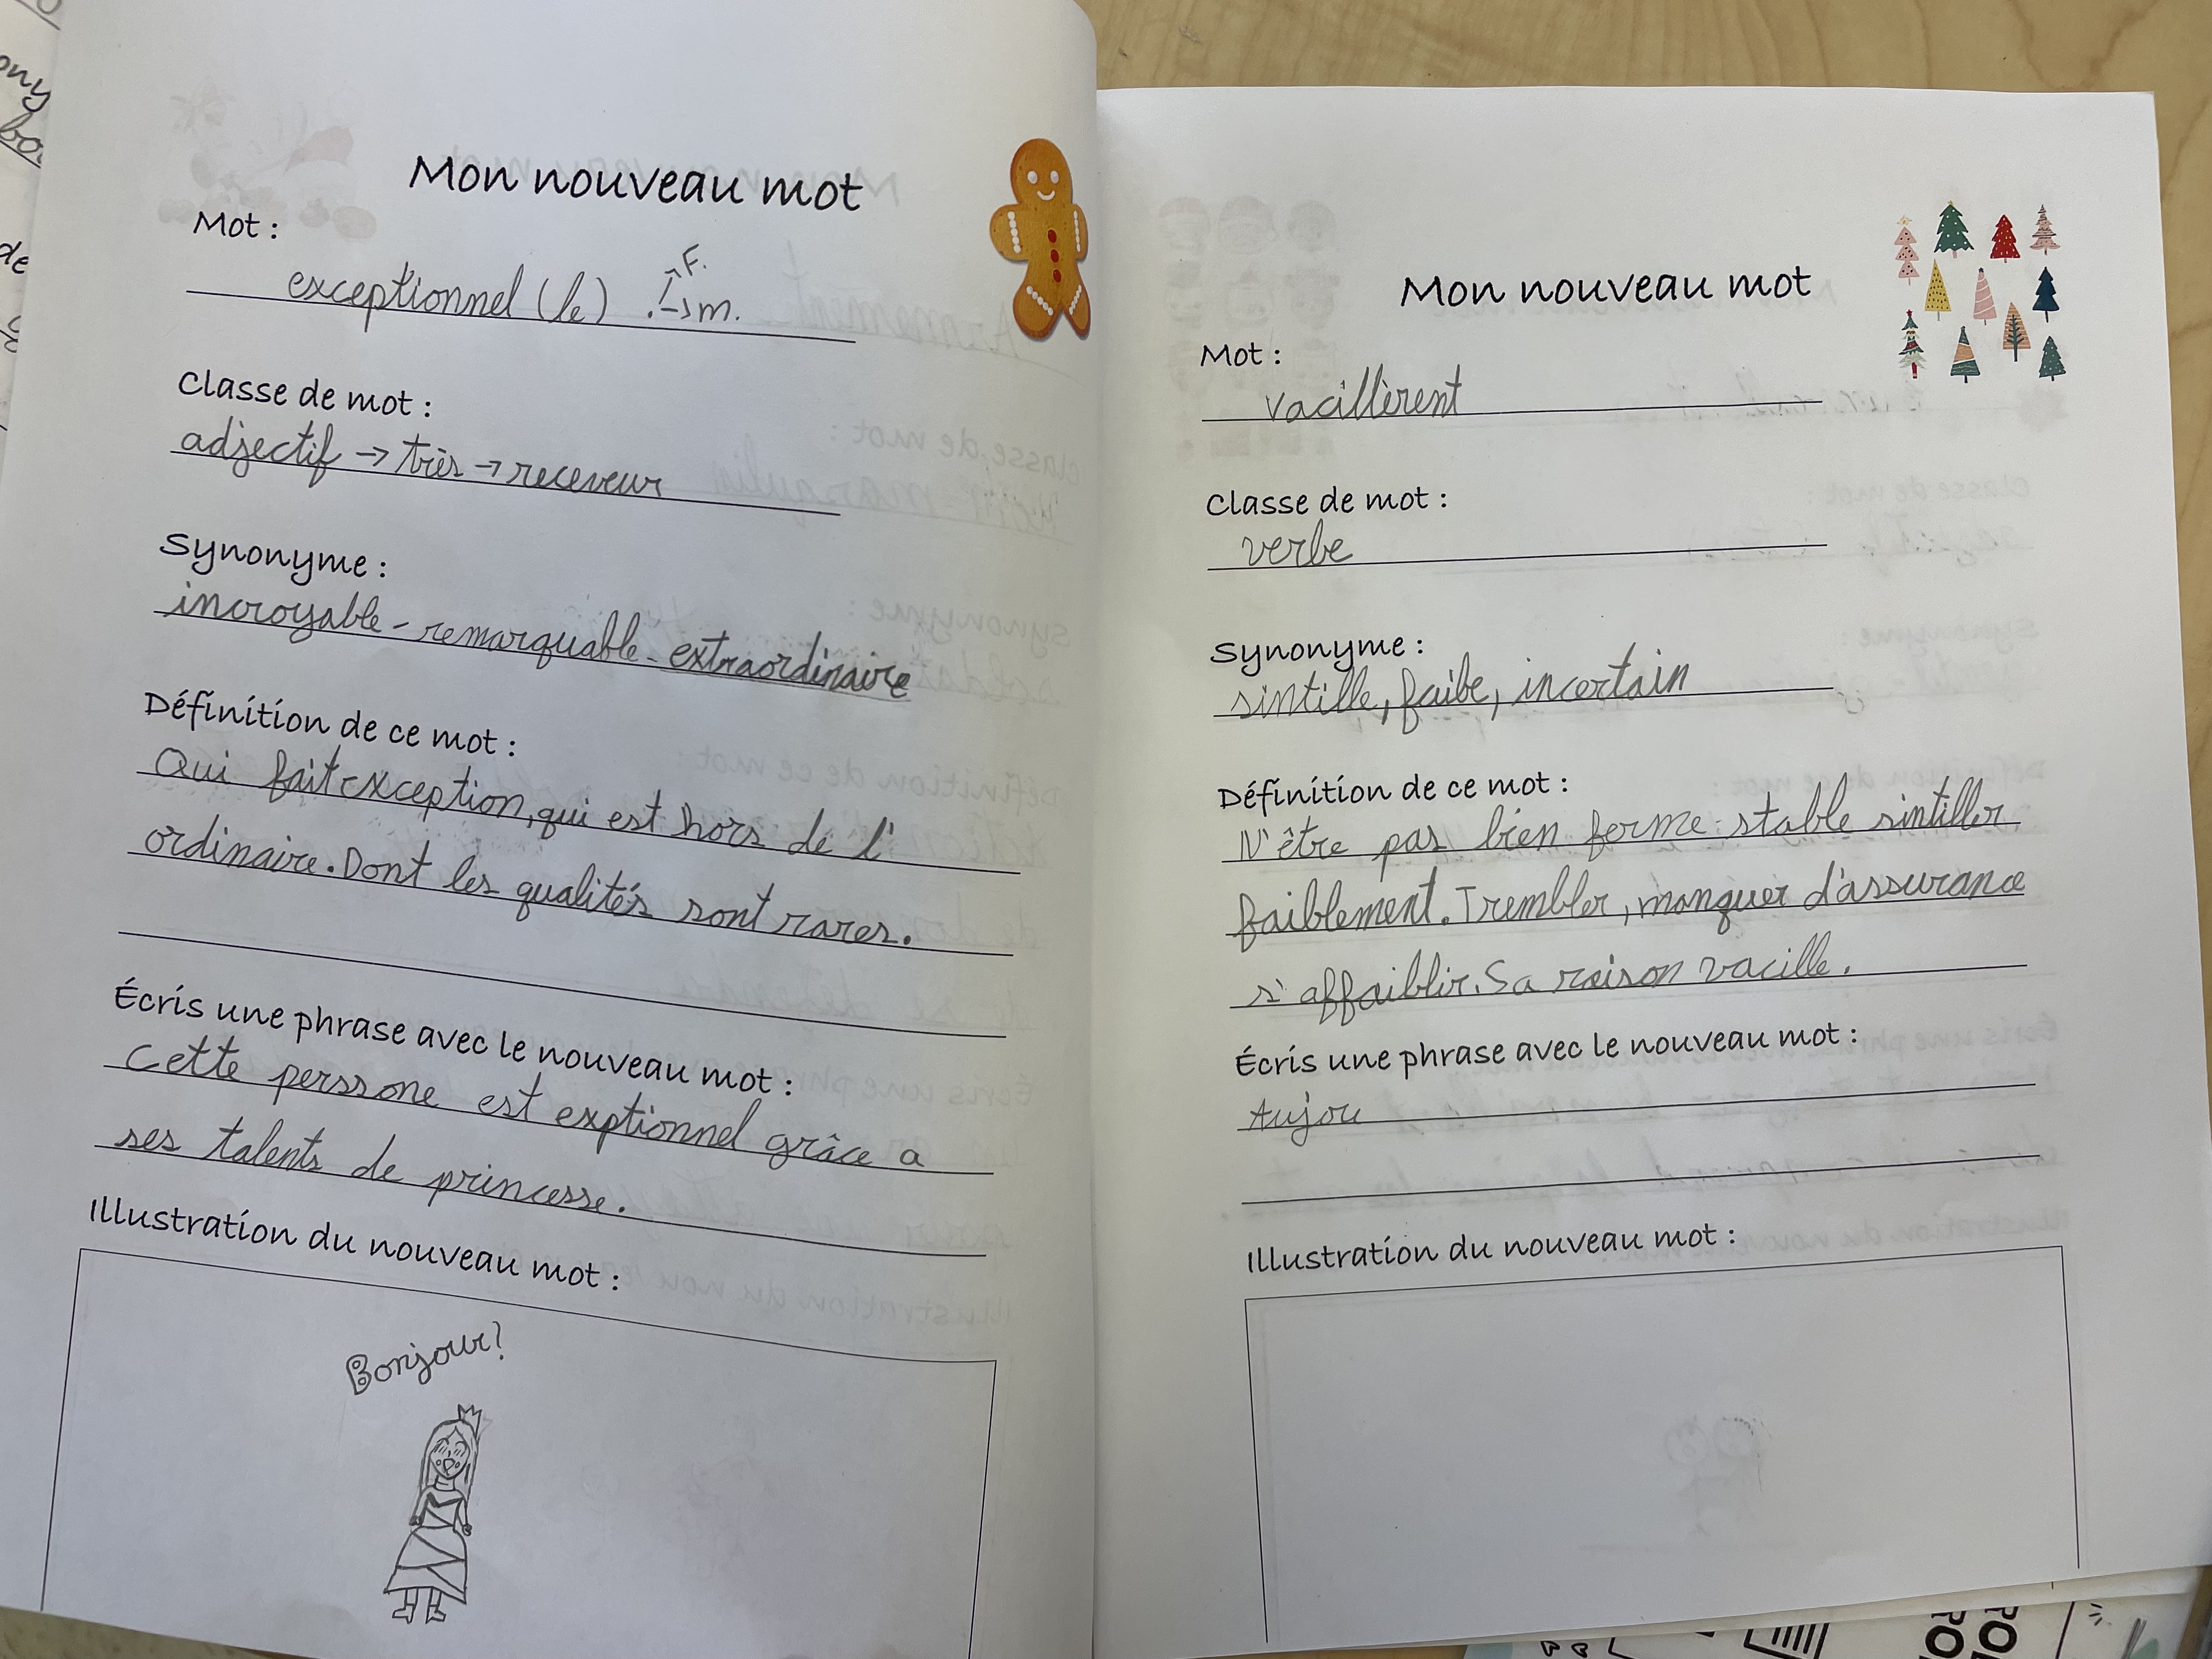 Mon nouveau mot
Mot :
exceptionnel (le) . F.
m.
Classe de mot :
adjectif → très → receveur
Synonyme :
incroyable - remarquable - extraordinaire
Définition de ce mot :
Qui fait exception, qui est hors de l'
ordinaire. Dont les qualités sont rares.
Écris une phrase avec le nouveau mot :
Cette perssone est exptionnel grâce a
ses talents de princesse.
Illustration du nouveau mot :
Bonjour?
Mon nouveau mot
Mot :
vacillèrent
Classe de mot :
verbe
Synonyme :
sintille, faibe, incertain
Définition de ce mot :
N'être pas bien ferme. stable sintiller
faiblement. Trembler, manquer d'assurance
s'affaiblir. Sa raison vacille.
Écris une phrase avec le nouveau mot :
Aujou
Illustration du nouveau mot :